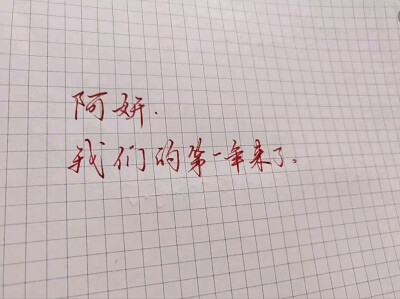 阿妍.
我们的第一年来了。